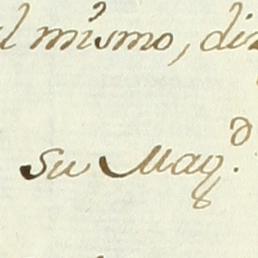 l mismo, di
su Mag.d